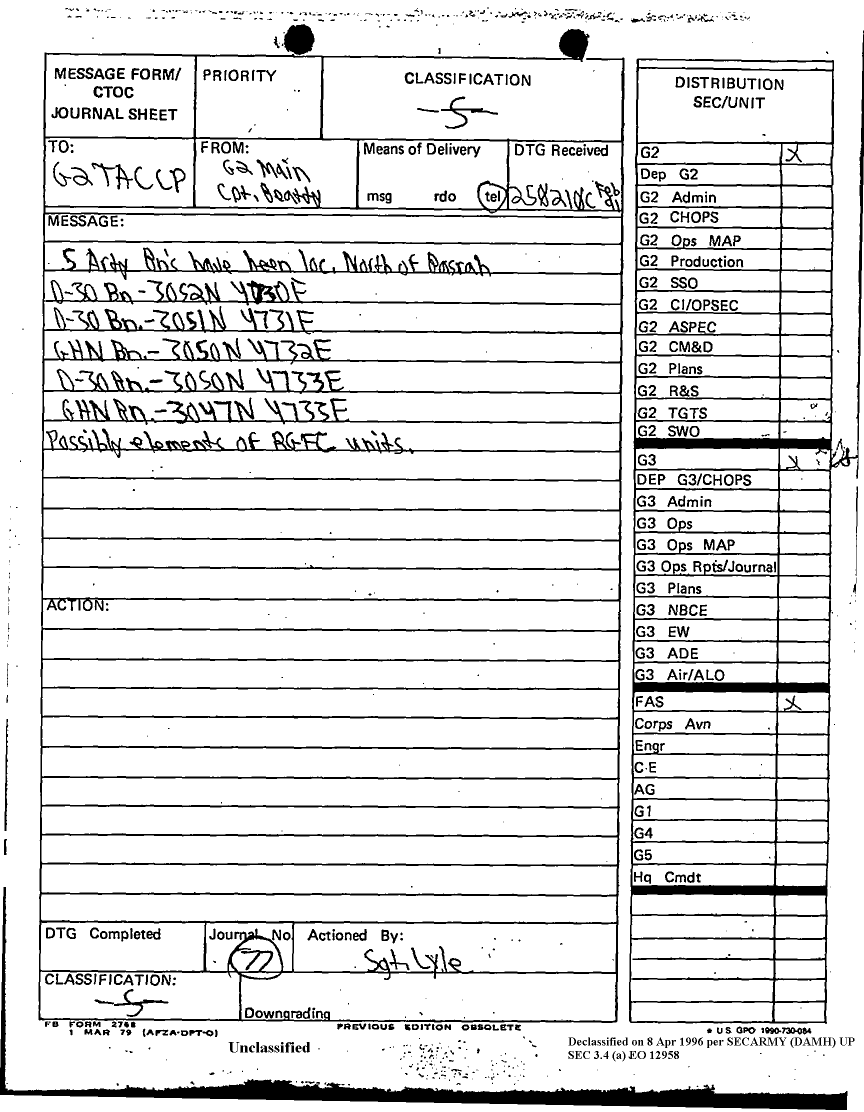 MESSAGE FORM/
CTOC
JOURNAL SHEET
PRIORITY
CLASSIFICATION
S
TO:
G2 TACCP
FROM:
G2 Main
Cpt. Beatty
Means of Delivery
msg rdo tel
DTG Received
258210C Feb 91
MESSAGE:
5 Arty Bn's have been loc. North of Basrah
D-30 Bn - 3052N 4730E
D-30 Bn. - 3051N 4731E
GHN Bn. - 3050N 4732E
D-30 Bn. - 3050N 4733E
GHN Bn. - 3047N 4733E
Possibly elements of RGFC units.
ACTION:
DTG Completed
Journal No.
77
Actioned By:
Sgt. Lyle
CLASSIFICATION:
S
Downgrading
FB FORM 2768
1 MAR 79 (AFZA-DPT-O)
PREVIOUS EDITION OBSOLETE
DISTRIBUTION
SEC/UNIT
G2 X
Dep G2
G2 Admin
G2 CHOPS
G2 Ops MAP
G2 Production
G2 SSO
G2 CI/OPSEC
G2 ASPEC
G2 CM&D
G2 Plans
G2 R&S
G2 TGTS
G2 SWO
G3 X
DEP G3/CHOPS
G3 Admin
G3 Ops
G3 Ops MAP
G3 Ops Rpts/Journal
G3 Plans
G3 NBCE
G3 EW
G3 ADE
G3 Air/ALO
FAS X
Corps Avn
Engr
C-E
AG
G1
G4
G5
Hq Cmdt
* U.S. GPO 1990-730-084
Unclassified
Declassified on 8 Apr 1996 per SECARMY (DAMH) UP
SEC 3.4 (a) EO 12958